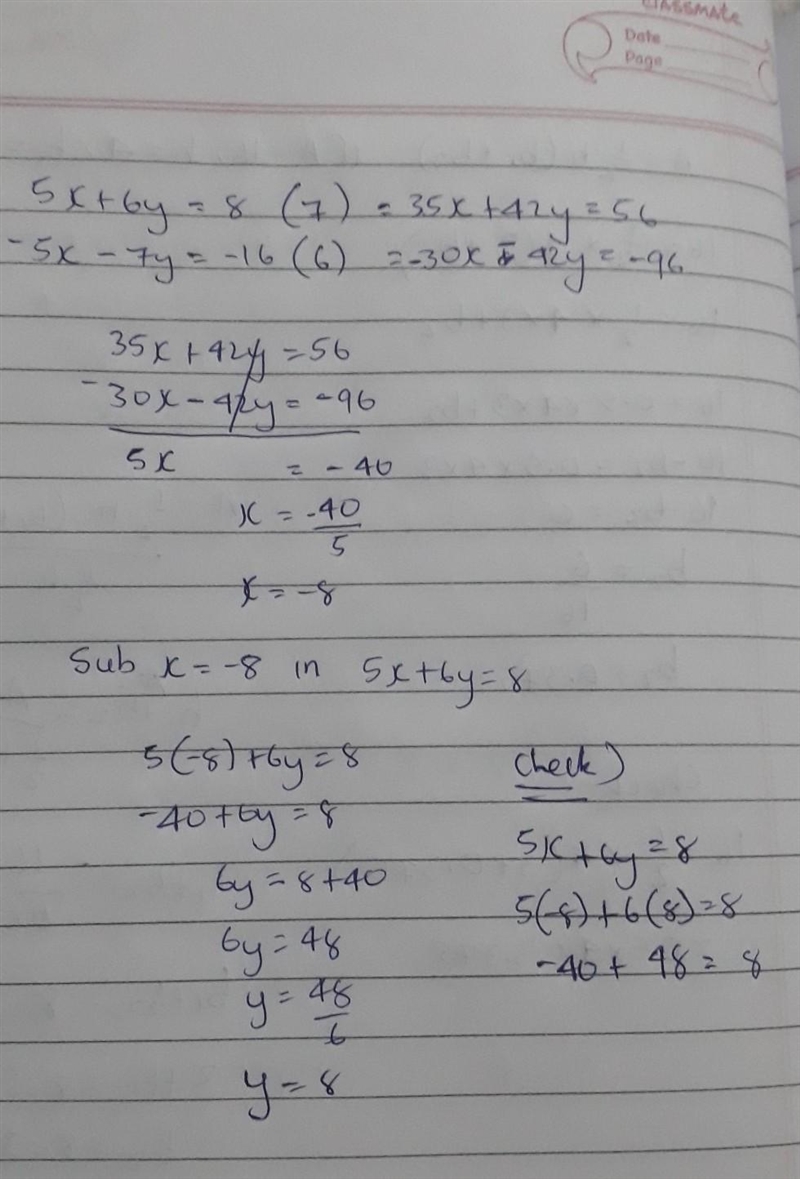 classmate
Date
Page
5x+6y = 8 (7) = 35x+42y=56
-5x - 7y = -16 (6) = -30x - 42y = -96
35x+42y=56
-30x-42y=-96
5x = -40
x = -40/5
x = -8
Sub x = -8 in 5x+6y=8
5(-8)+6y=8
-40+6y=8
6y = 8+40
6y = 48
y = 48/6
y = 8
Check)
5x+6y=8
5(-8)+6(8)=8
-40+48=8